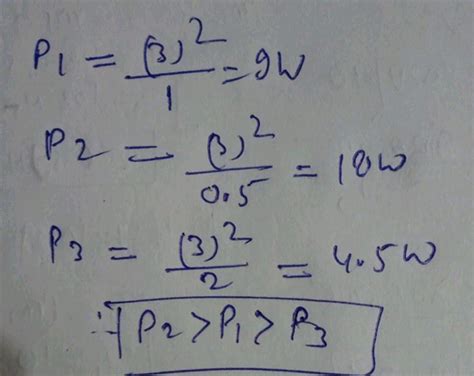 P1 = (3)² / 1 = 9W
P2 = (3)² / 0.5 = 18W
P3 = (3)² / 2 = 4.5W
∴ P2 > P1 > P3